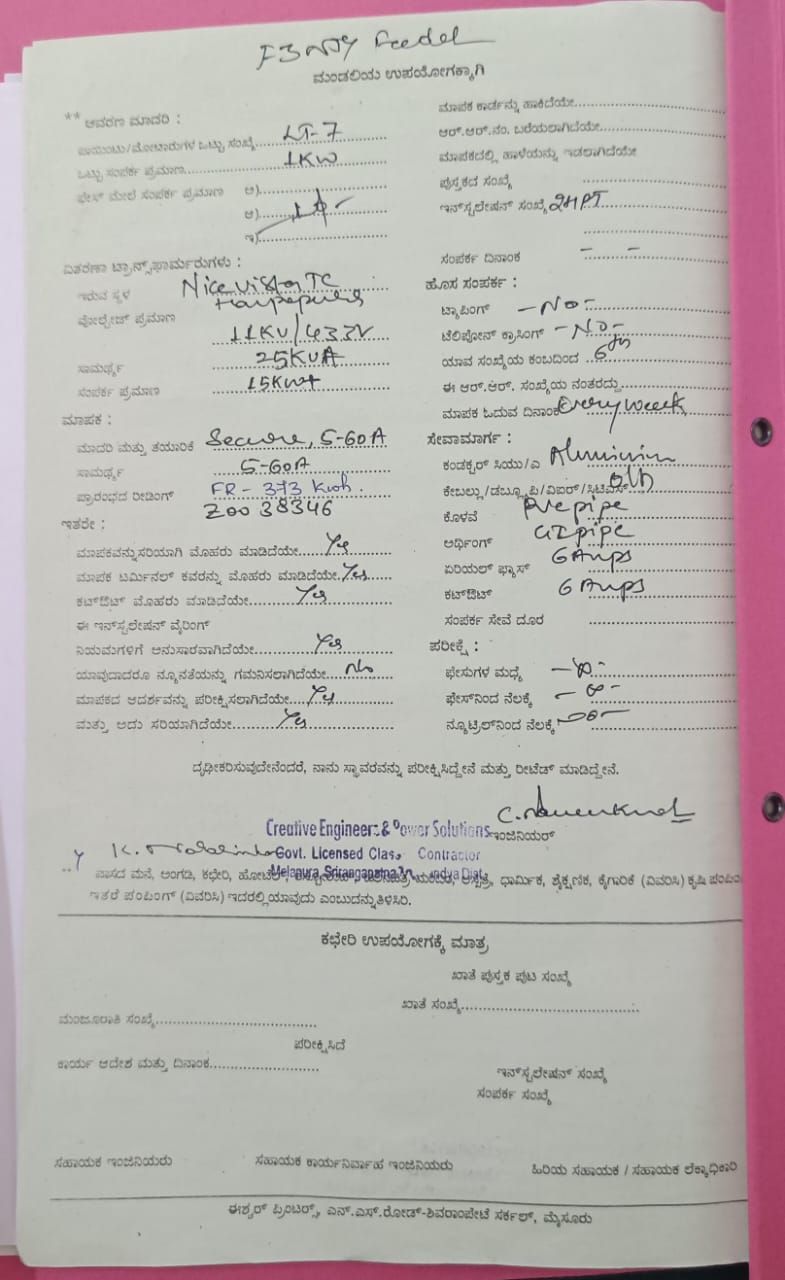 F3 NJY Feeder
ಮಂಡಲಿಯ ಉಪಯೋಗಕ್ಕಾಗಿ
** ಆವರಣ ಮಾದರಿ :
ಪಾಯಿಂಟು/ಮೋಟಾರುಗಳ ಒಟ್ಟು ಸಂಖ್ಯೆ LT-7
ಒಟ್ಟು ಸಂಪರ್ಕ ಪ್ರಮಾಣ 1KW
ಫೇಸ್ ಮೇಲೆ ಸಂಪರ್ಕ ಪ್ರಮಾಣ ಅ)
ಆ)
ಇ)
ವಿತರಣಾ ಟ್ರಾನ್ಸ್‌ಫಾರ್ಮರುಗಳು :
ಇರುವ ಸ್ಥಳ Nice Vista TC
ವೋಲ್ಟೇಜ್ ಪ್ರಮಾಣ 11KV/433V
ಸಾಮರ್ಥ್ಯ 25KVA
ಸಂಪರ್ಕ ಪ್ರಮಾಣ 15KW
ಮಾಪಕ :
ಮಾದರಿ ಮತ್ತು ತಯಾರಿಕೆ Secure, 5-60A
ಸಾಮರ್ಥ್ಯ 5-60A
ಪ್ರಾರಂಭದ ರೀಡಿಂಗ್ FR - 373 Kwh.
Z0038346
ಇತರೇ :
ಮಾಪಕವನ್ನು ಸರಿಯಾಗಿ ಮೊಹರು ಮಾಡಿದೆಯೇ Yes
ಮಾಪಕ ಟರ್ಮಿನಲ್ ಕವರನ್ನು ಮೊಹರು ಮಾಡಿದೆಯೇ Yes
ಕಟ್‌ಔಟ್ ಮೊಹರು ಮಾಡಿದೆಯೇ Yes
ಈ ಇನ್‌ಸ್ಟಲೇಷನ್ ವೈರಿಂಗ್
ನಿಯಮಗಳಿಗೆ ಅನುಸಾರವಾಗಿದೆಯೇ Yes
ಯಾವುದಾದರೂ ನ್ಯೂನತೆಯನ್ನು ಗಮನಿಸಲಾಗಿದೆಯೇ No
ಮಾಪಕದ ಆದರ್ಶವನ್ನು ಪರೀಕ್ಷಿಸಲಾಗಿದೆಯೇ Yes
ಮತ್ತು ಅದು ಸರಿಯಾಗಿದೆಯೇ Yes
ಮಾಪಕ ಕಾರ್ಡನ್ನು ಹಾಕಿದೆಯೇ
ಆರ್.ಆರ್.ನಂ. ಬರೆಯಲಾಗಿದೆಯೇ
ಮಾಪಕದಲ್ಲಿ ಹಾಳೆಯನ್ನು ಇಡಲಾಗಿದೆಯೇ
ಪುಸ್ತಕದ ಸಂಖ್ಯೆ
ಇನ್‌ಸ್ಟಲೇಷನ್ ಸಂಖ್ಯೆ
ಸಂಪರ್ಕ ದಿನಾಂಕ - -
ಹೊಸ ಸಂಪರ್ಕ :
ಟ್ಯಾಪಿಂಗ್ -No-
ಟೆಲಿಫೋನ್ ಕ್ರಾಸಿಂಗ್ -No-
ಯಾವ ಸಂಖ್ಯೆಯ ಕಂಬದಿಂದ 6
ಈ ಆರ್.ಆರ್. ಸಂಖ್ಯೆಯ ನಂತರದ್ದು
ಮಾಪಕ ಓದುವ ದಿನಾಂಕ Every week
ಸೇವಾಮಾರ್ಗ :
ಕಂಡಕ್ಟರ್ ಸಿಯು/ಎ Aluminium
ಕೇಬಲ್ಲು/ಡಬ್ಲ್ಯೂಪಿ/ವಿಐಆರ್/ಸಿಟಿಎಸ್
ಕೊಳವೆ PVC pipe
ಅರ್ಥಿಂಗ್ GI pipe
ಏರಿಯಲ್ ಫ್ಯೂಸ್ 6 Amps
ಕಟ್‌ಔಟ್ 6 Amps
ಸಂಪರ್ಕ ಸೇವೆ ದೂರ
ಪರೀಕ್ಷೆ :
ಫೇಸುಗಳ ಮಧ್ಯೆ
ಫೇಸ್‌ನಿಂದ ನೆಲಕ್ಕೆ
ನ್ಯೂಟ್ರಲ್‌ನಿಂದ ನೆಲಕ್ಕೆ
ದೃಢೀಕರಿಸುವುದೇನೆಂದರೆ, ನಾನು ಸ್ಥಾವರವನ್ನು ಪರೀಕ್ಷಿಸಿದ್ದೇನೆ ಮತ್ತು ರೀಟೆಡ್ ಮಾಡಿದ್ದೇನೆ.
Creative Engineers & Power Solutions
ಇಂಜಿನಿಯರ್
Govt. Licensed Class Contractor
Melapura, Srirangapatna
ವಾಸದ ಮನೆ, ಅಂಗಡಿ, ಕಛೇರಿ, ಹೋಟೆಲ್, ಆಸ್ಪತ್ರೆ, ಧಾರ್ಮಿಕ, ಶೈಕ್ಷಣಿಕ, ಕೈಗಾರಿಕೆ (ವಿವರಿಸಿ) ಕೃಷಿ ಪಂಪಿಂ
ಇತರೆ ಪಂಪಿಂಗ್ (ವಿವರಿಸಿ) ಇದರಲ್ಲಿ ಯಾವುದು ಎಂಬುದನ್ನು ತಿಳಿಸಿರಿ.
ಕಛೇರಿ ಉಪಯೋಗಕ್ಕೆ ಮಾತ್ರ
ಖಾತೆ ಪುಸ್ತಕ ಪುಟ ಸಂಖ್ಯೆ
ಖಾತೆ ಸಂಖ್ಯೆ
ಮಂಜೂರಾತಿ ಸಂಖ್ಯೆ
ಪರೀಕ್ಷಿಸಿದೆ
ಕಾರ್ಯ ಆದೇಶ ಮತ್ತು ದಿನಾಂಕ
ಇನ್‌ಸ್ಟಲೇಷನ್ ಸಂಖ್ಯೆ
ಸಂಪರ್ಕ ಸಂಖ್ಯೆ
ಸಹಾಯಕ ಇಂಜಿನಿಯರು ಸಹಾಯಕ ಕಾರ್ಯನಿರ್ವಾಹ ಇಂಜಿನಿಯರು ಹಿರಿಯ ಸಹಾಯಕ / ಸಹಾಯಕ ಲೆಕ್ಕಾಧಿಕಾರಿ
ಈಶ್ವರ್ ಪ್ರಿಂಟರ್ಸ್, ಎನ್.ಎಸ್.ರೋಡ್-ಶಿವರಾಂಪೇಟೆ ಸರ್ಕಲ್, ಮೈಸೂರು